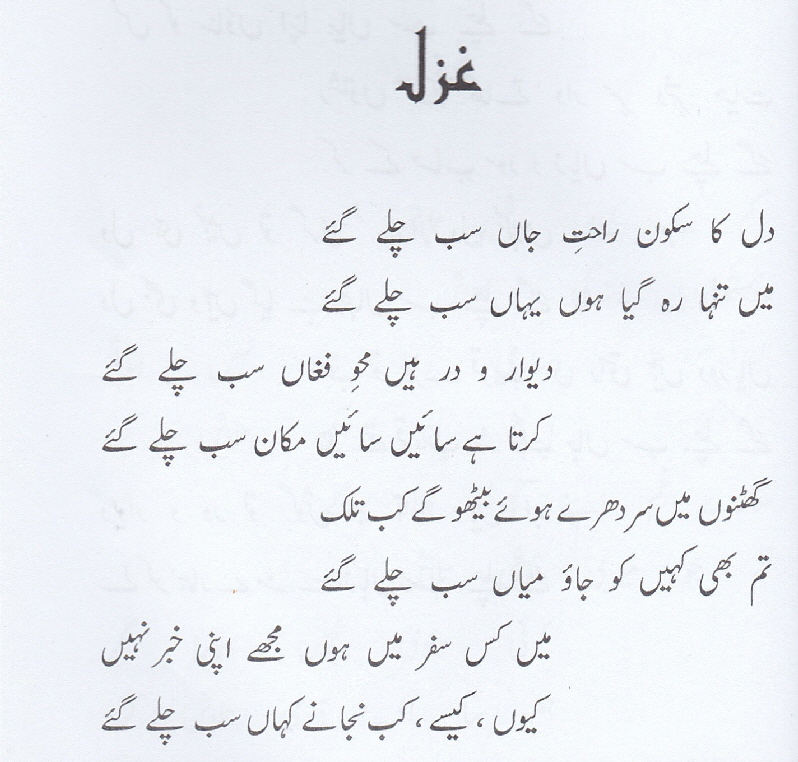 غزل
دل کا سکون راحتِ جاں سب چلے گئے
میں تنہا رہ گیا ہوں یہاں سب چلے گئے
دیوار و در ہیں محوِ فغاں سب چلے گئے
کرتا ہے سائیں سائیں مکان سب چلے گئے
گھٹنوں میں سر دھرے ہوئے بیٹھو گے کب تلک
تم بھی کہیں کو جاؤ میاں سب چلے گئے
میں کس سفر میں ہوں مجھے اپنی خبر نہیں
کیوں ، کیسے ، کب نجانے کہاں سب چلے گئے